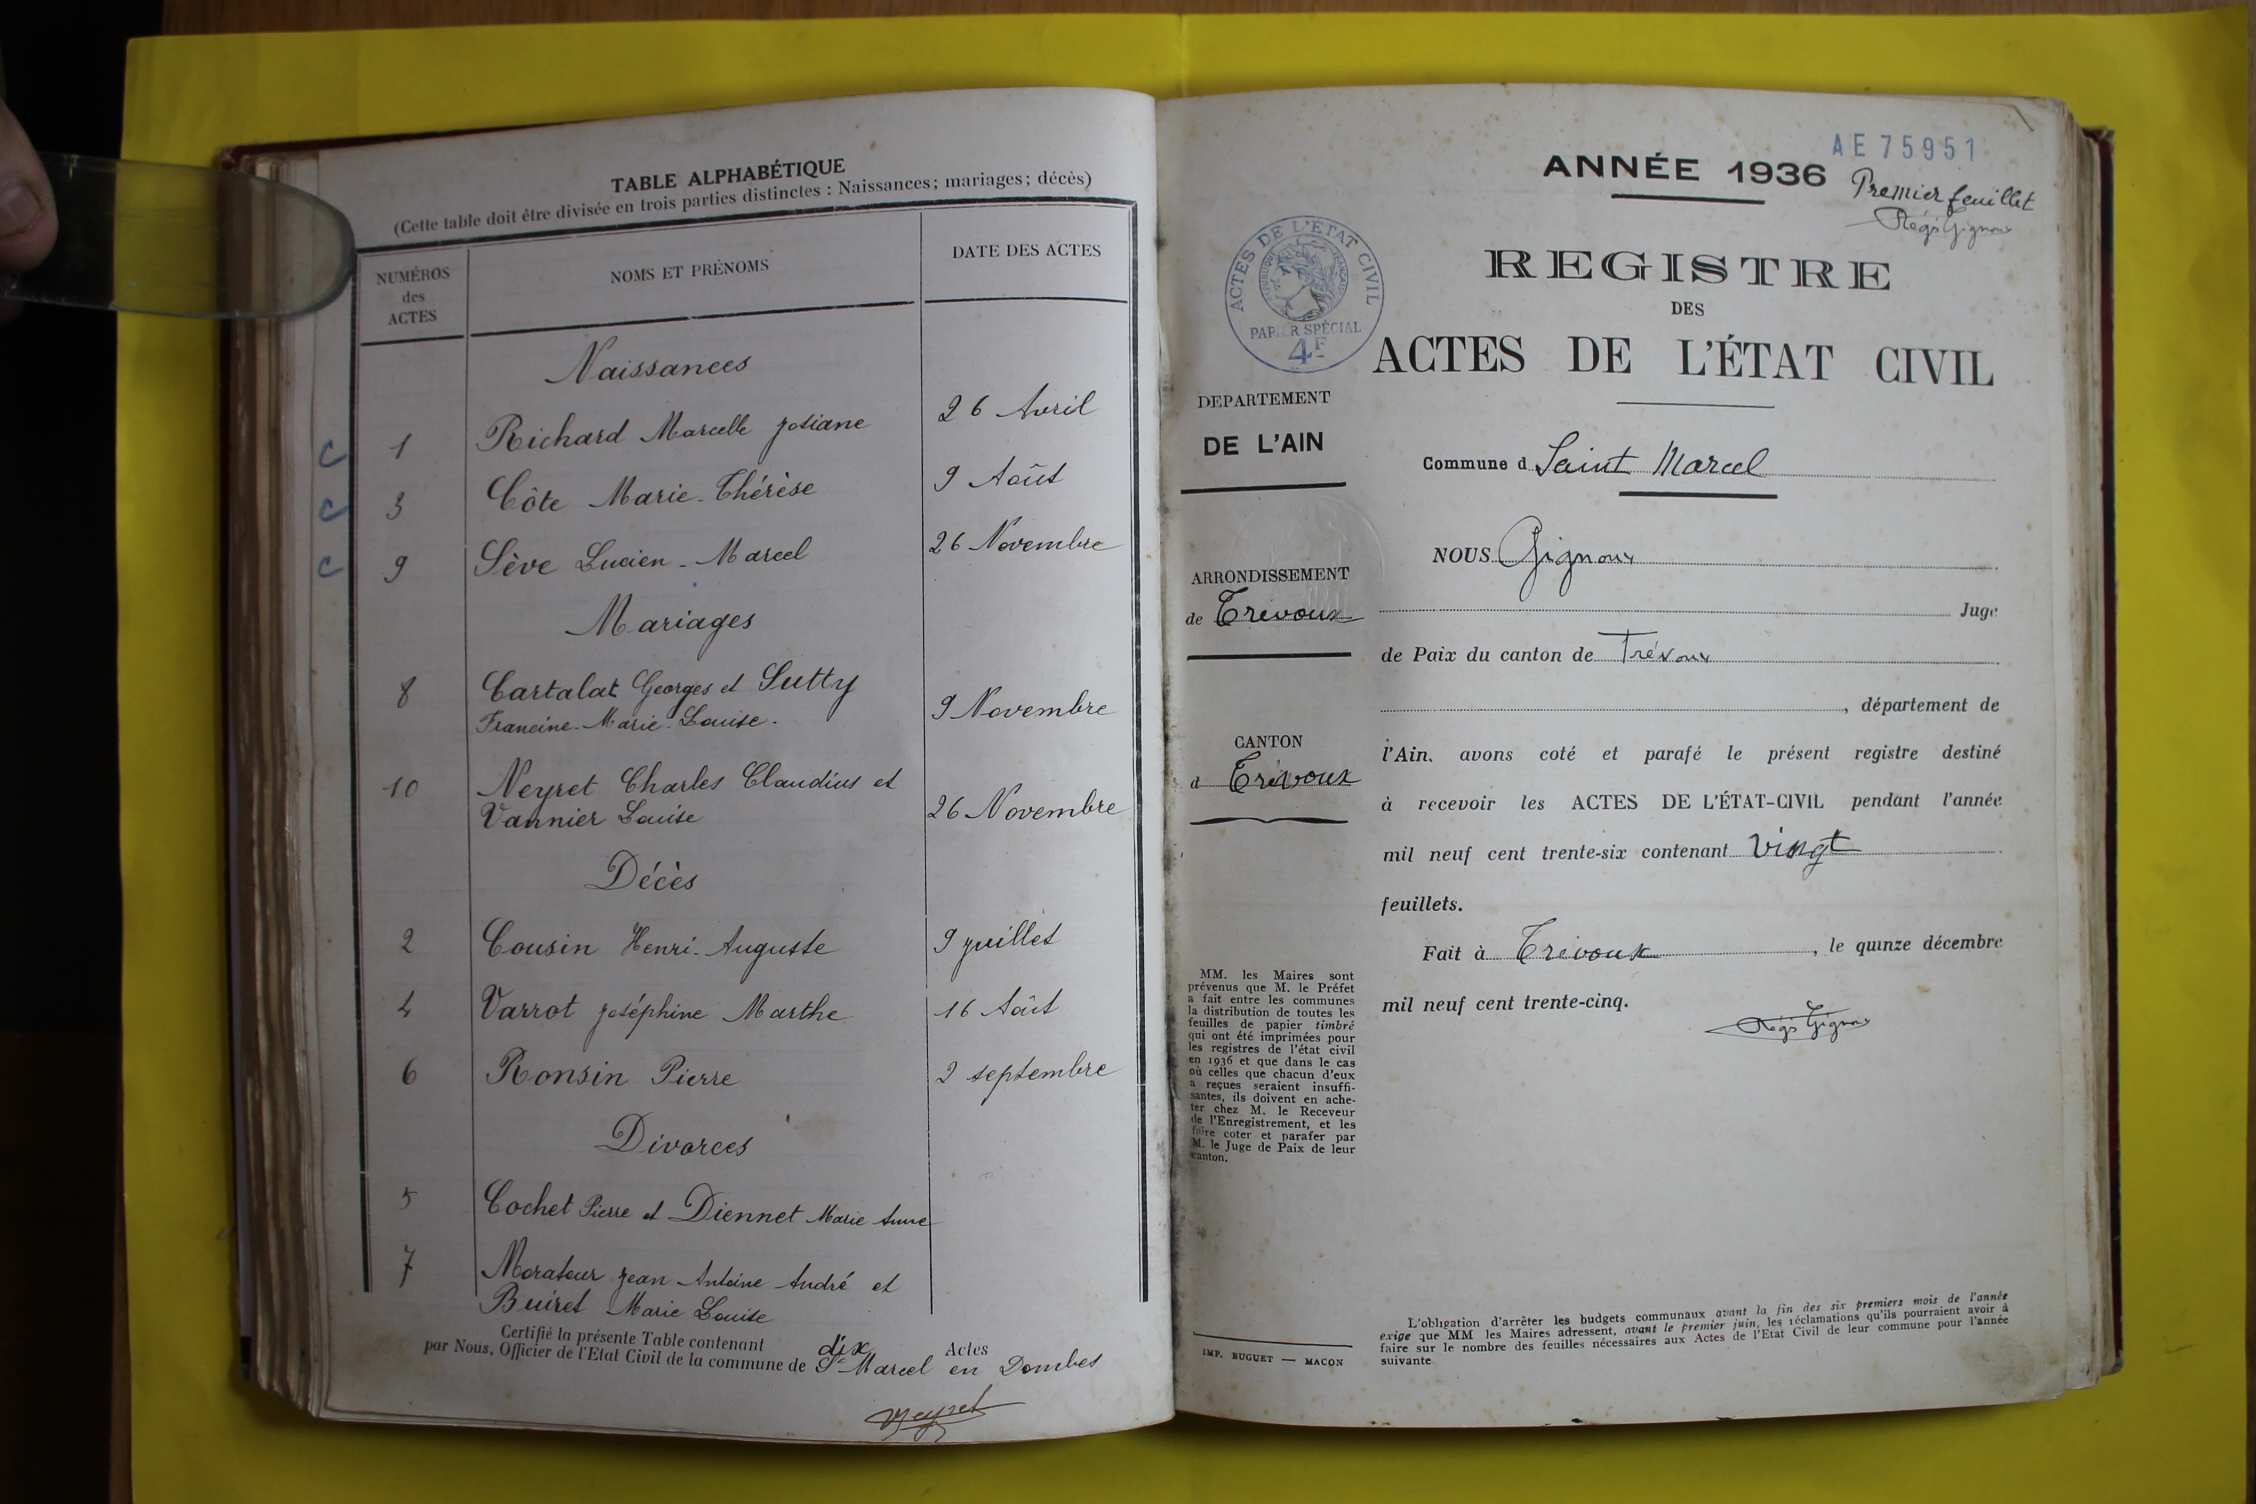 TABLE ALPHABÉTIQUE
(Cette table doit être divisée en trois parties distinctes : Naissances; mariages; décès)
NUMÉROS
des
ACTES
NOMS ET PRÉNOMS
DATE DES ACTES
Naissances
C 1 Richard Marcelle Josiane 26 Avril
C 3 Côte Marie-Thérèse 9 Août
C 9 Sève Lucien-Marcel 26 Novembre
Mariages
8 Cartalat Georges et Sutty
Francine-Marie-Louise. 9 Novembre
10 Neyret Charles Claudius et
Vannier Louise 26 Novembre
Décès
2 Cousin Henri-Auguste 9 juillet
4 Varrot joséphine Marthe 16 Août
6 Ronsin Pierre 2 septembre
Divorces
5 Cochet Pierre et Diennet Marie Anne
7 Morateur jean Antoine André et
Buiret Marie Louise
Certifié la présente Table contenant dix Actes
par Nous, Officier de l'Etat Civil de la commune de St Marcel en Dombes
Neyret
AE75951
ANNÉE 1936
Premier feuillet
Régis Gignoux
REGISTRE
DES
ACTES DE L'ÉTAT CIVIL
ACTES DE L'ÉTAT CIVIL
RÉPUBLIQUE FRANÇAISE
PAPIER SPÉCIAL
4F
DEPARTEMENT
DE L'AIN
ARRONDISSEMENT
de Trévoux
CANTON
d Trévoux
MM. les Maires sont
prévenus que M. le Préfet
a fait entre les communes
la distribution de toutes les
feuilles de papier timbré
qui ont été imprimées pour
les registres de l'état civil
en 1936 et que dans le cas
où celles que chacun d'eux
a reçues seraient insuffi-
santes, ils doivent en ache-
ter chez M. le Receveur
de l'Enregistrement, et les
faire coter et parafer par
M. le Juge de Paix de leur
canton.
IMP. BUGUET — MACON
Commune d Saint Marcel
NOUS Gignoux
Juge
de Paix du canton de Trévoux
, département de
l'Ain, avons coté et parafé le présent registre destiné
à recevoir les ACTES DE L'ÉTAT-CIVIL pendant l'année
mil neuf cent trente-six contenant vingt
feuillets.
Fait à Trévoux , le quinze décembre
mil neuf cent trente-cinq.
Régis Gignoux
L'obligation d'arrêter les budgets communaux avant la fin des six premiers mois de l'année
exige que MM les Maires adressent, avant le premier juin, les réclamations qu'ils pourraient avoir à
faire sur le nombre des feuilles nécessaires aux Actes de l'Etat Civil de leur commune pour l'année
suivante